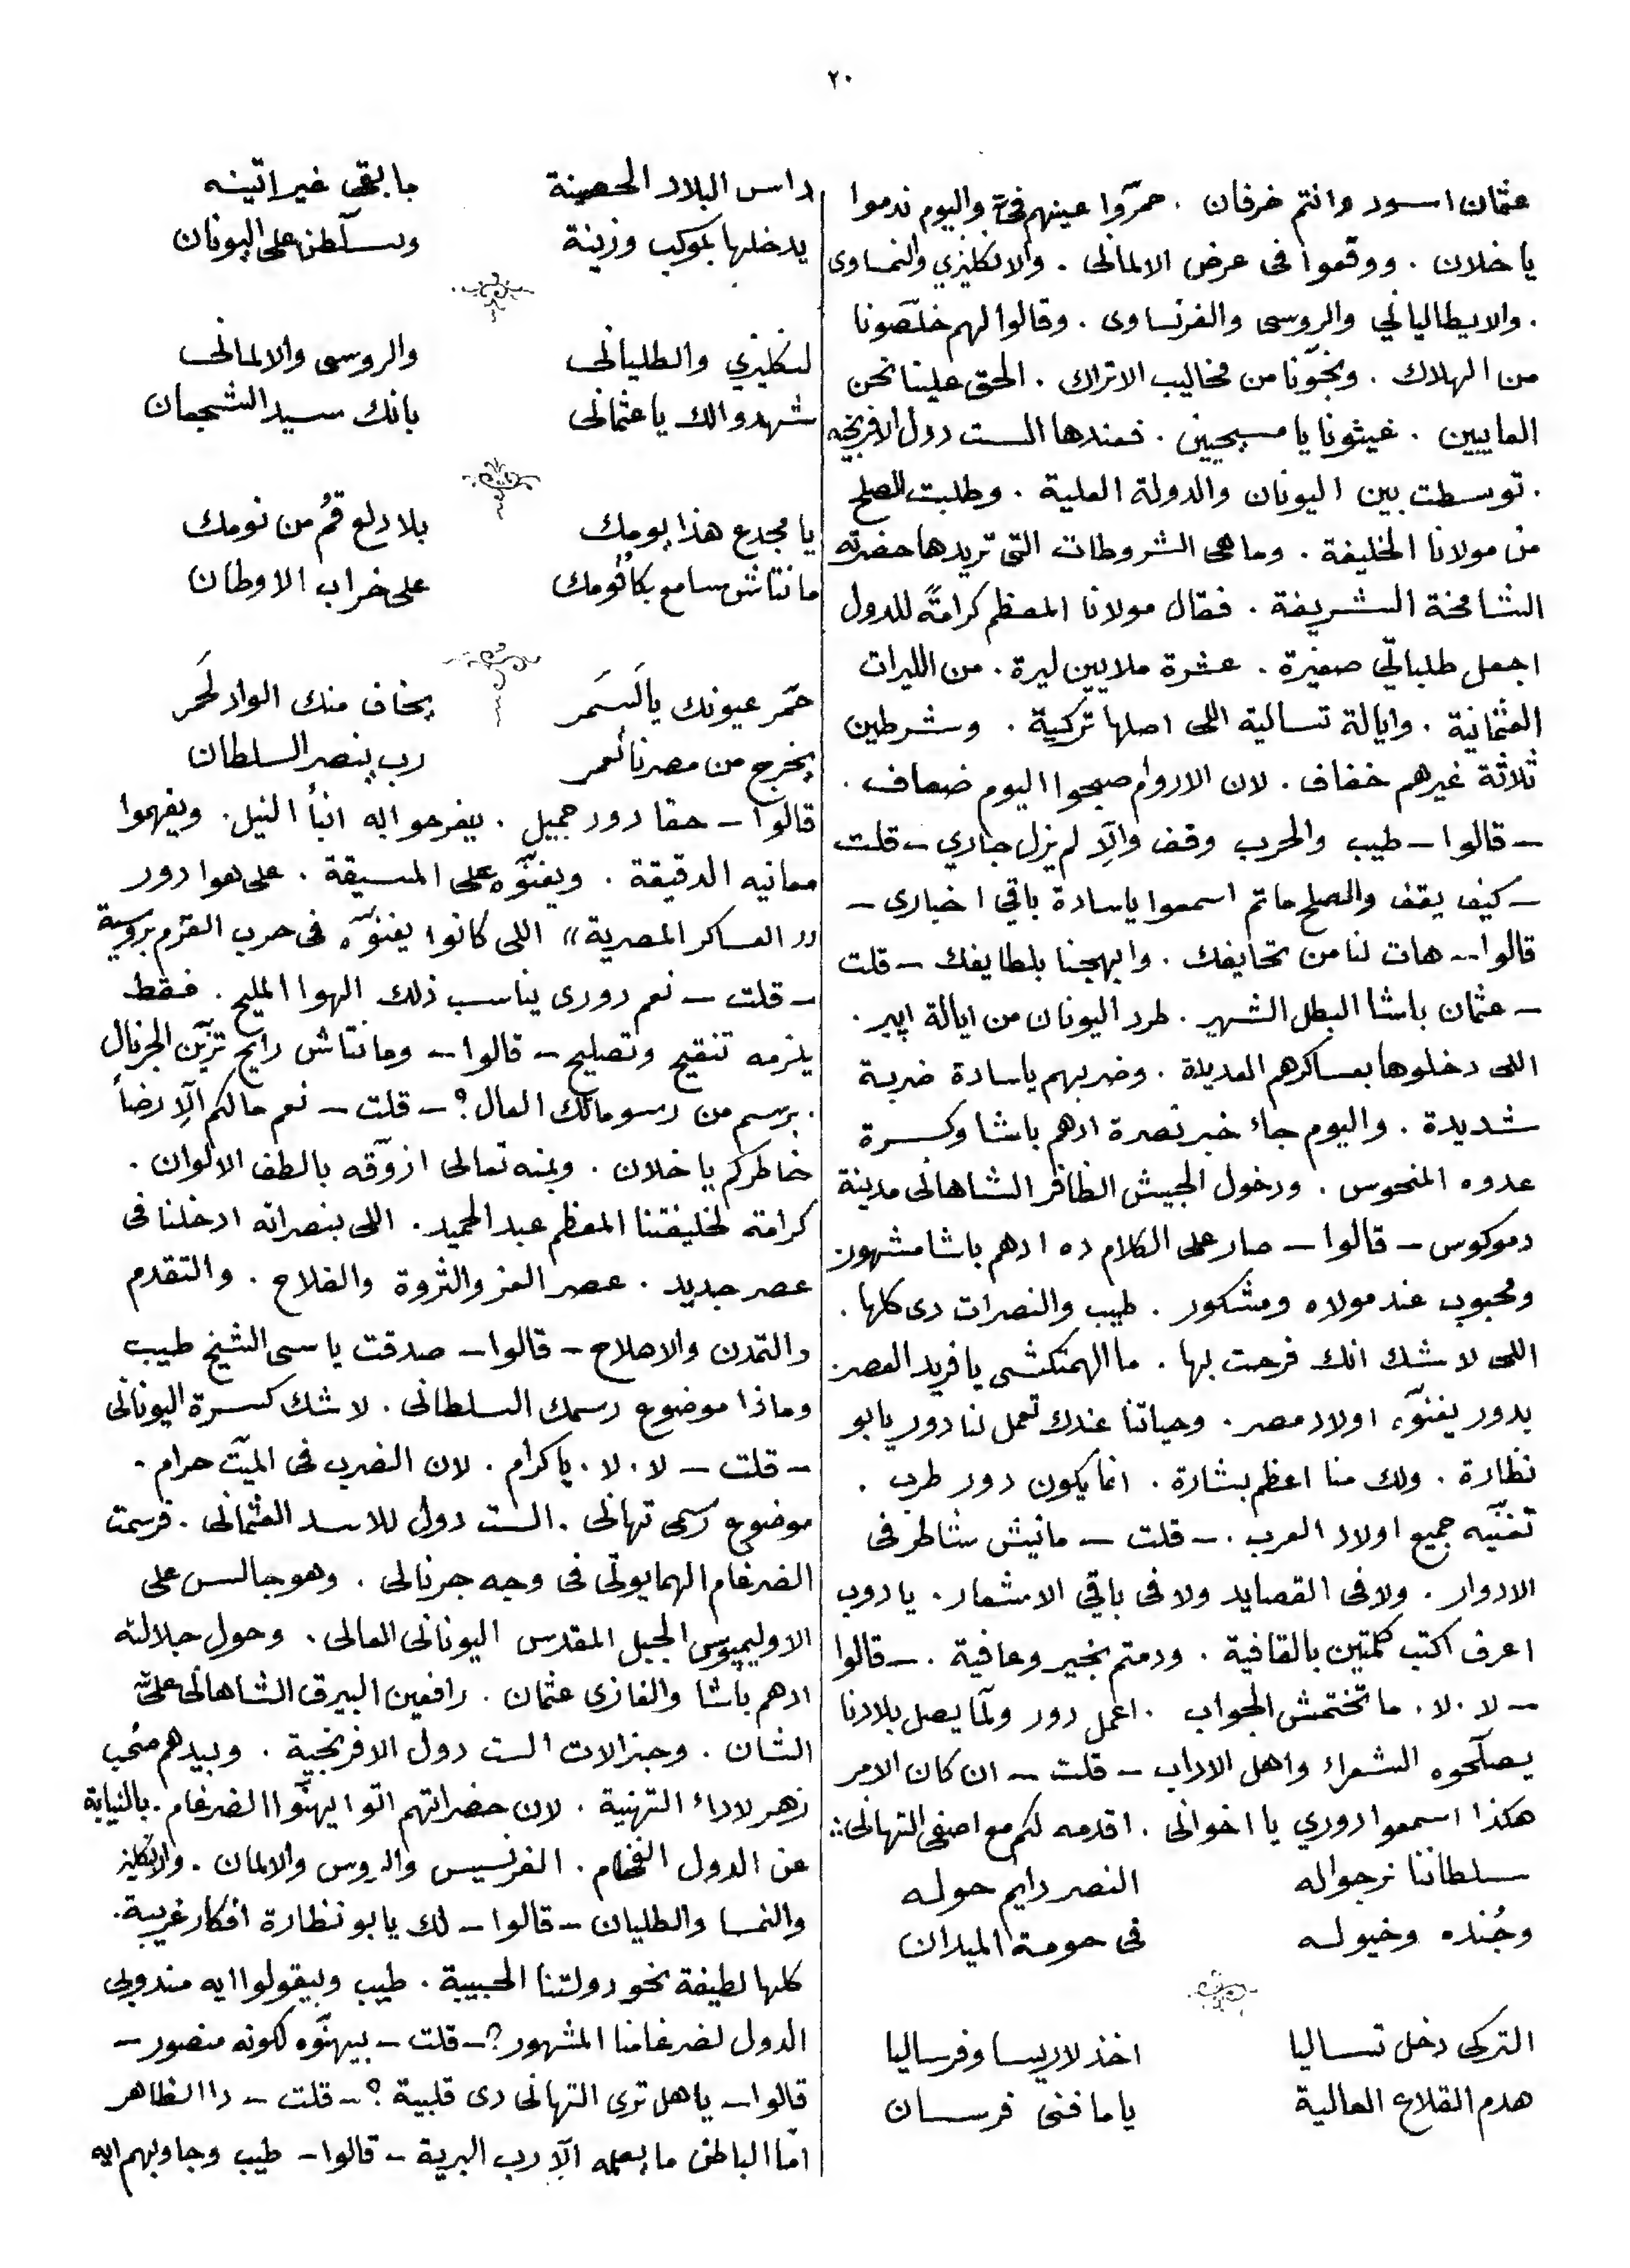 ٢٠
عثمان اسود وانتم خرفان . حمّروا عينهم فيّه واليوم ندموا
يا خلان . ووقعوا فى عرض الالمانى . والانكليزي والنمساوى
. والايطالياني والروسى والفرنساوى . وقالوا لهم خلّصونا
من الهلاك . ونجّونا من مخاليب الاتراك . الحق علينا نحن
العايبين . غيثونا يا مسيحيين . فعندها الست دول الافرنجيه
. توسطت بين اليونان والدولة العلية . وطلبت الصلح
من مولانا الخليفة . وما هى الشروطات التى تريدها حضرته
الشامخة الشريفة . فقال مولانا المعظم كرامةً للدول
اجعل طلباتي صغيرة . عشرة ملايين ليرة . من الليرات
العثمانية . وايالة تساليه اللى اصلها تركية . وشرطين
ثلاثة غيرهم خفاف . لان الاروام صبحوا اليوم ضعاف .
– قالوا – طيب والحرب وقف والّا لم يزل جاري – قلت
– كيف يقف والصلح ما تم اسمعوا يا سادة باقي اخبارى –
قالوا -- هات لنا من تحايفك . وابهجنا بلطايفك – قلت
– عثمان باشا البطل الشهير . طرد اليونان من ايالة اپير .
اللى دخلوها بعساكرهم العديدة . وضربهم يا سادة ضربة
شديدة . واليوم جاء خبر نصرة ادهم باشا وكسرة
عدوه المنحوس . ودخول الجيش الظافر الشاهانى مدينة
دموكوس – قالوا – صار على الكلام ده ادهم باشا مشهور
ومحبوب عند مولاه ومشكور . طيب والنصرات دى كلها .
اللى لا شك انك فرحت بها . ما الهمتكشى يا فريد العصر
بدور يغنّوه اولاد مصر . وحياتنا عندك تعمل لنا دور يا بو
نظارة . ولك منا اعظم بشارة . انما يكون دور طرب .
تغنّيه جميع اولاد العرب . – قلت – مانيش شاطر فى
الادوار . ولا فى القصايد ولا فى باقي الاشعار . يا دوب
اعرف اكتب كلمتين بالقافية . ودمتم بخير وعافية . – قالوا
– لا . لا . ما تختمش الجواب . اعمل دور ولمّا يصل بلادنا
يصلّحوه الشعراء واهل الاداب – قلت – ان كان الامر
هكذا اسمعوا دوري يا اخوانى . اقدمه لكم مع اصفى التهانى :
سلطاننا نرجوا له النصر دايم حوله
وجُنده وخيوله فى حومة الميدان
التركى دخل تساليا اخذ لاريسا وفرساليا
هدم القلاع العالية ياما فنى فرسان
داس البلاد الحصينة ما بقى غير اتينه
يدخلها بموكب وزينة ويسلّطن على اليونان
لنكليزي والطليانى والروسى والالمانى
شهدوا لك يا عثمانى بانك سيد الشجعان
يا مجدع هذا يومك بلا دلع قُم من نومك
ما نتاش سامع بكا قومك على خراب الاوطان
حمّر عيونك يا لَسمَر يخاف منك الواد لَحمَر
يخرج من مصرنا لعمر رب ينصر السلطان
قالوا – حقا دور جميل . يفرحوا به ابنأ النيل . ويفهموا
معانيه الدقيقة . ويغنّوه على المسيقة . على هوا دور
«العساكر المصرية» اللى كانوا يغنّوه فى حرب القرم بروسية
– قلت – نعم دورى يناسب ذلك الهوا المليح . فقط
يلزمه تنقيح وتصليح – قالوا – وما نتاش رايح تزيّن الجرنال
. برسم من رسوماتك العال ؟ – قلت – نعم ما لكم الّا رضأ
خاطركم يا خلان . وبمنه تعالى ازوّقه بالطف الالوان .
كرامة لخليفتنا المعظم عبد الحميد . اللى بنصراته ادخلنا فى
عصر جديد . عصر العز والثروة والفلاح . والتقدم
والتمدن والاصلاح – قالوا – صدقت يا سى الشيخ طيب
وماذا موضوع رسمك السلطانى . لا شك كسرة اليونانى
– قلت – لا . لا . يا كرام . لان الضرب فى الميّت حرام .
موضوع رسمى تهانى . الست دول للاسد العثمانى . فرسمت
الضرغام الهمايونّى فى وجه جرنالى . وهو جالس على
الاوليمپوس الجبل المقدس اليونانى العالى . وحول جلالته
ادهم باشا والغازى عثمان . رافعين البيرق الشاهانى على
الشان . وجنرالات الست دول الافرنجية . وبيدهم صُحب
زهر لاداء التهنية . لان حضراتهم اتوا يهنّوا الضرغام . بالنيابة
عن الدول الفخام . الفرنسيس والروس والالمان . والانكليز
والنمسا والطليان – قالوا – لك يا بو نظارة افكار غريبة .
كلها لطيفة نحو دولتنا الحبيبة . طيب وبيقولوا ايه مندوبي
الدول لضرغامنا المشهور ؟ – قلت – بيهنّوه لكونه منصور –
قالوا – يا هل ترى التهانى دى قلبية ؟ – قلت – دا الظاهر
امّا الباطن ما يعلمه الّا رب البرية – قالوا – طيب وجاوبهم ايه